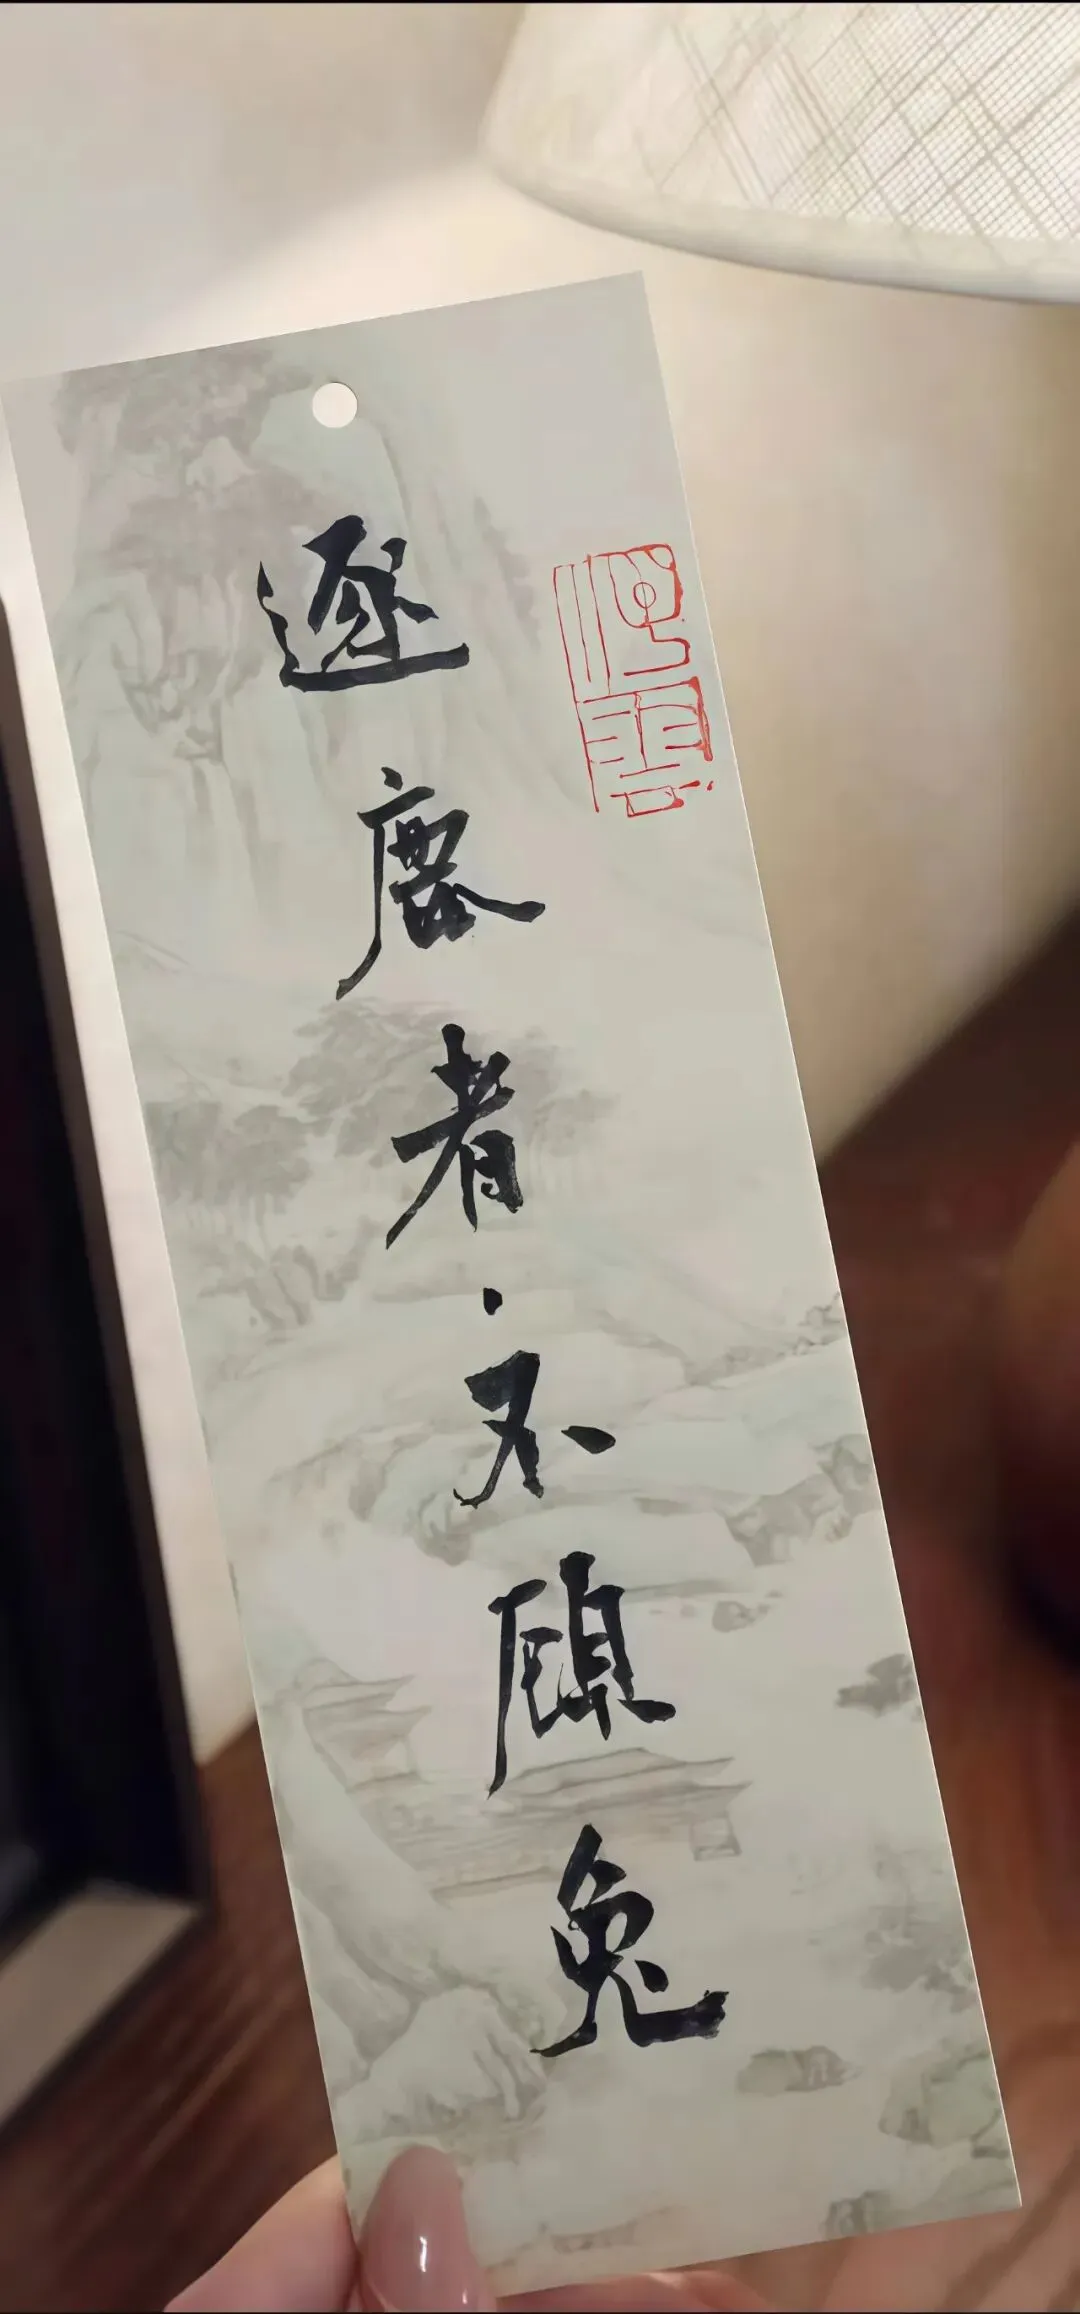 逐鹿者·不顾兔